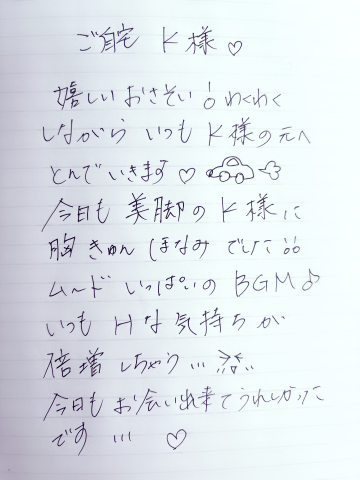 ご自宅 K様♡
嬉しいおさそい！わくわく
しながら いつも K様の元へ
とんでいきます♡
今日も 美脚の K様に
胸きゅん ほなみ でした
ムード いっぱいの BGM♪
いつも Hな気持ちが
倍増 しちゃう…
今日も お会い出来てうれしかった
です … ♡